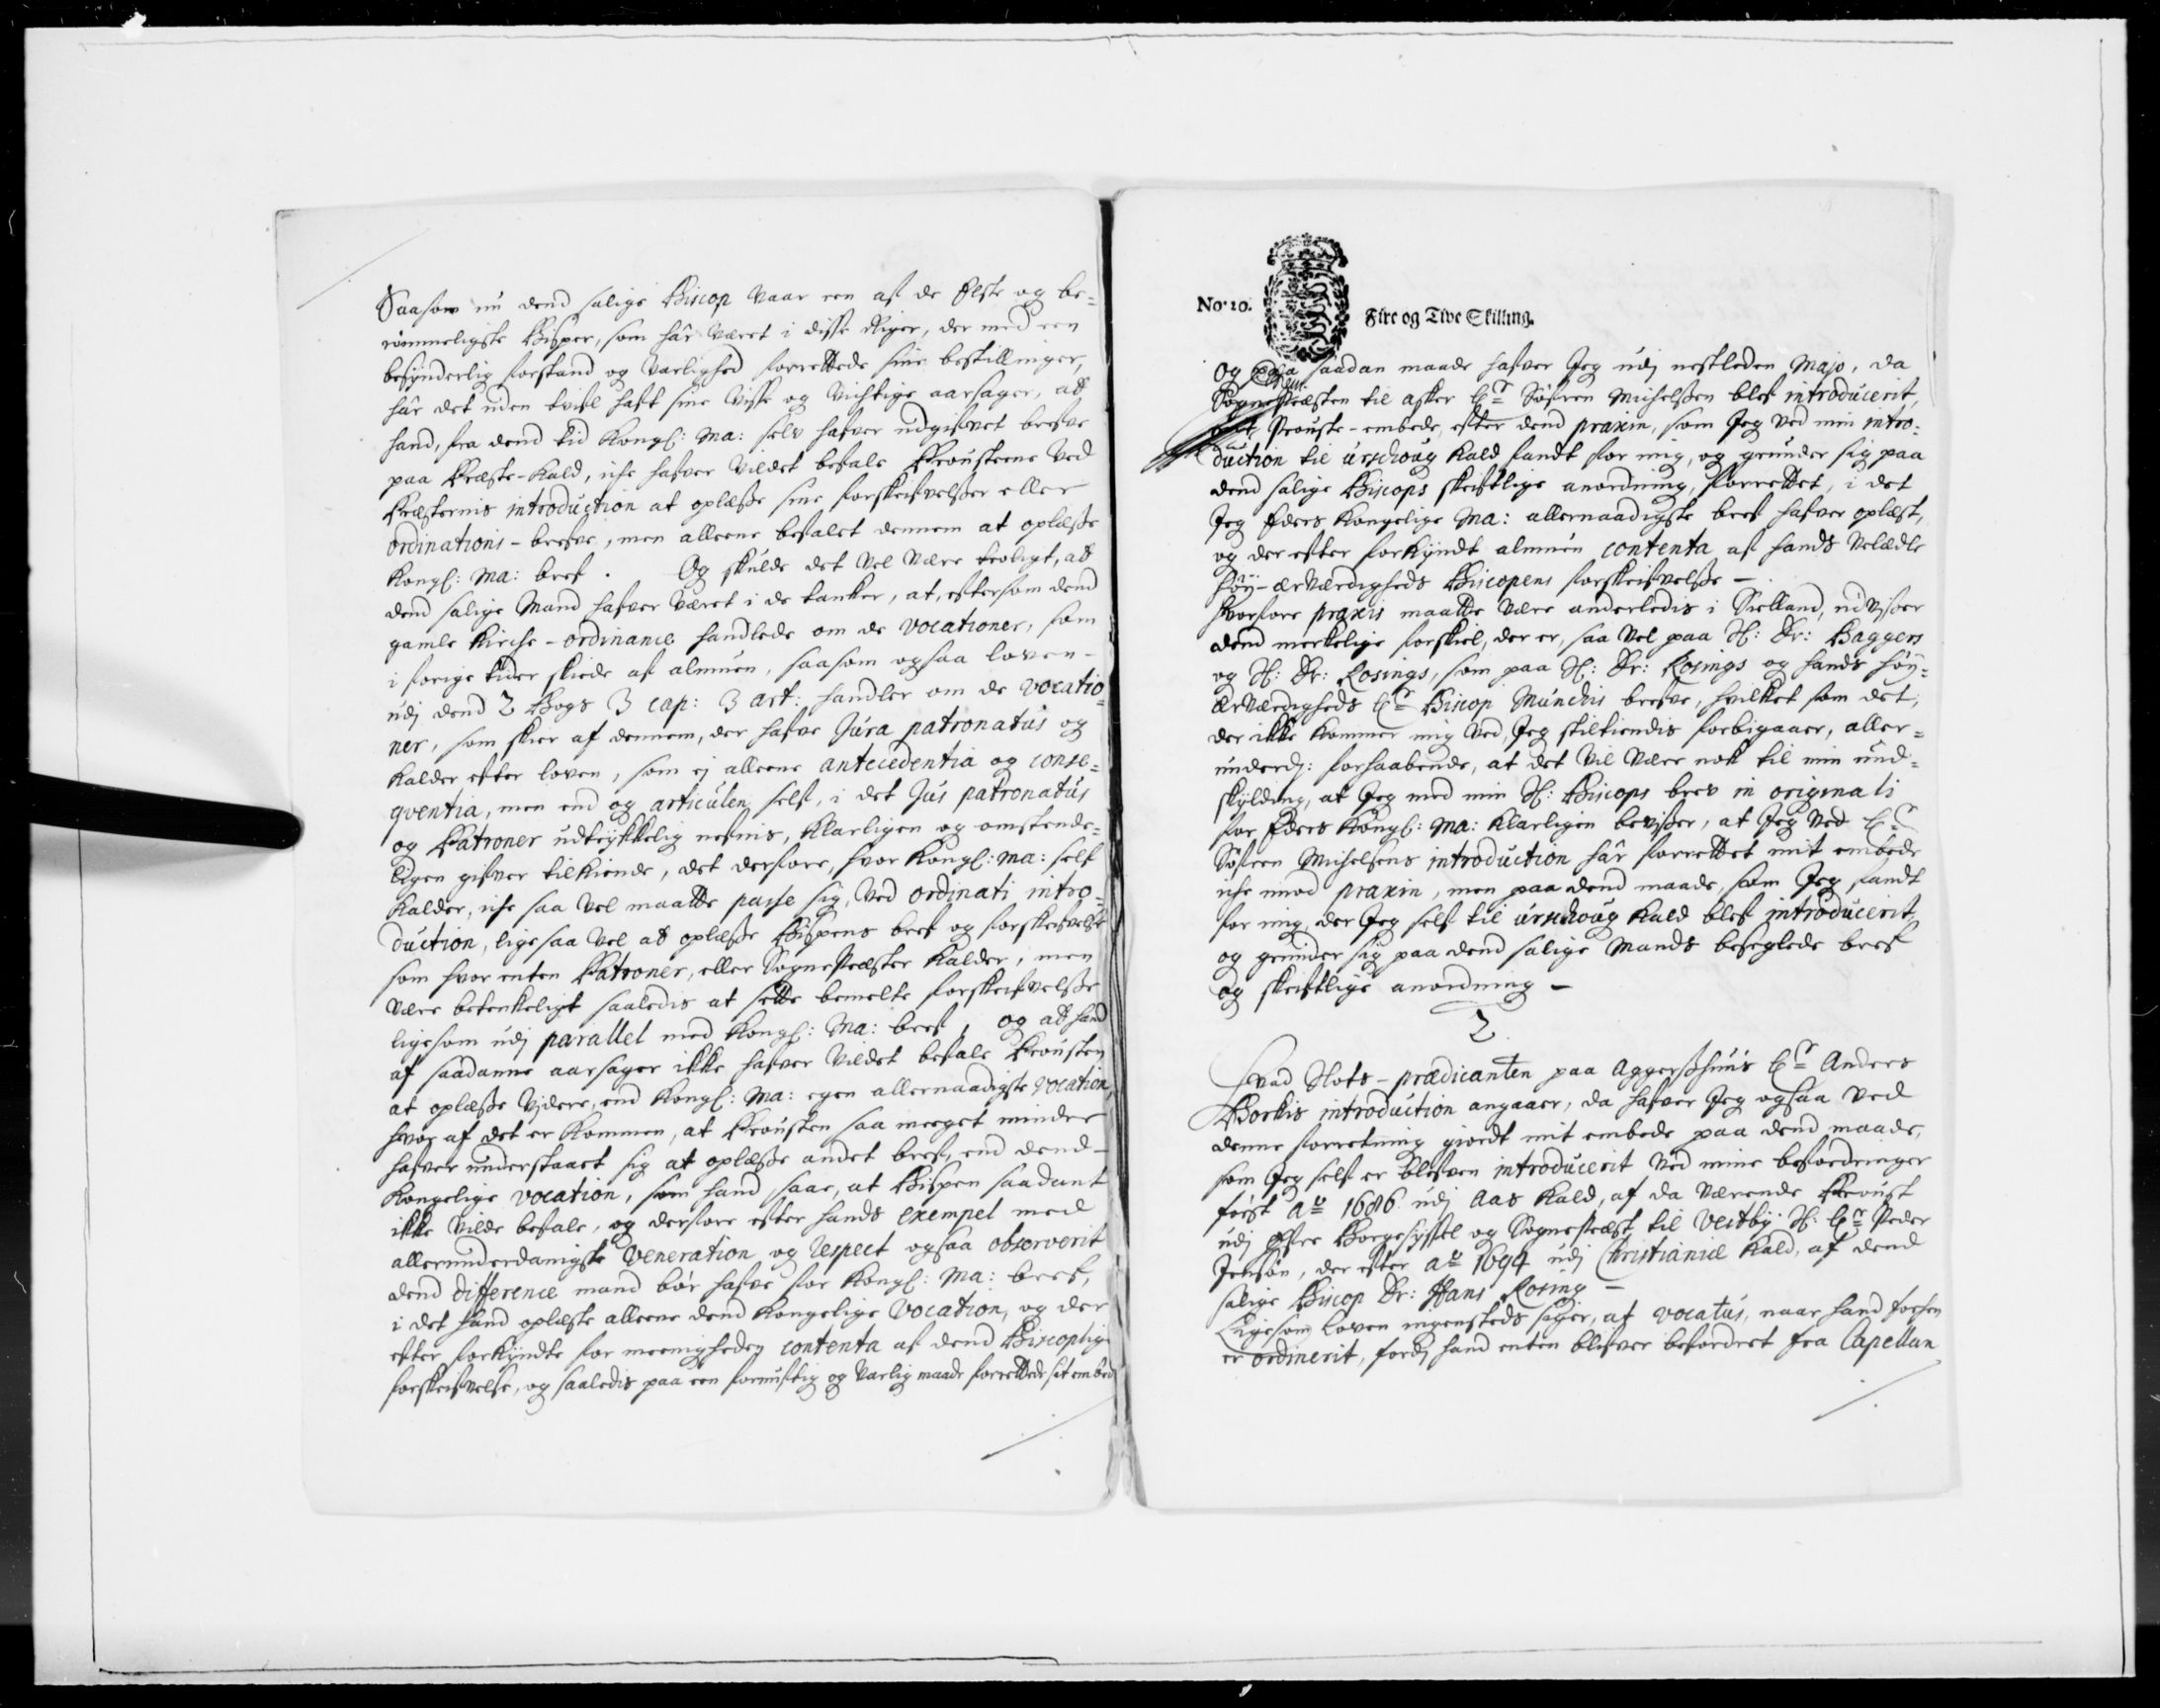 Saasom nu dend salige Biscop vaar een af de Elste og be=
römmeligste Bisper, som hâr været i disse Riger, der med een
besynderlig forstand og varlighed forrettede sine bestillinger,
hâr det uden tvifl haft sine visse og vichtige aarsager, att
hand, fra dend tid Kongl: Ma: self hafver udgifvet brefve
paa Præste-Kald, iche hafver vildet befale Prousterne ved
Præsternis introduction at oplæsse sine forskrifvelsser eller
ordinations-brefve, men alleene befalet dennem at oplæsse
Kongl: Ma: bref. Og skulde det vel være troligt, att
dend salige Mand hafver været i de tanker, at, eftersom dend
gamle Kirche-ordinance handlede om de vocationer, som
i forige tider skeede af almuen, saasom ogsaa loven
udj dend 2 Bogs 3 cap: 3 art: handler om de vocatio=
ner, som skeer af dennem, der hafve Jura patronatus og
kalder efter loven, som ej alleene antecedentia og conse=
qventia, men end og articulen self, i det Jus patronatus
og Patroner udtrykkelig nefnis, klarligen og omstende=
ligen gifver tilkiende, det derfore, hvor Kongl: Ma: self
kalder, iche saa vel maatte passe sig, ved ordinati intro=
duction, ligesaa vel att oplæsse Bispens bref og forskrifvelse
som hvor enten Patroner, eller Sognepræster kalder, men
være betenkeligt saaledis at sette bemelte forskrifvelsse
ligesom udj parallel med Kongl: Ma: bref, og att hand
af saadanne aarsager ikke hafver vildet befale Prousten
at oplæsse vjdere, end Kongl: Ma: egen allernaadigste vocation,
hvor af det er kommen, at Prousten saa meeget mindre
hafver understaaet sig at oplæsse andet bref, end dend
Kongelige vocation, som hand saae, at Bispen saadant
ikke vilde befale, og derfore efter hands exempel med
allerunderdanigste veneration og respect ogsaa observerit
dend difference mand bör hafve for Kongl: Ma: bref,
i det hand oplæste alleene dend Kongelige vocation, og der
efter forkyndte for meenigheden contenta af dend Biscoplige
forskrifvelse, og saaledis paa een fornuftig og varlig maade forrettede sit embede
No: 10.
Fire og Tive Skilling.
Og paa saadan maade hafver Jeg udj nestleden Majo, da
Sognepræsten til Asker Hr Söfren Michelssen blef introducerit,
Prouste-embede, efter dend praxin, som Jeg ved min intro=
duction til Urschoug Kald fandt for mig, og grunder sig paa
dend salige Biscops skriftlige anordning, forrettet, i det
Jeg Eders Kongelige Ma: allernaadigste bref hafver oplæst,
og der efter forkyndt almuen contenta af hands velædle
höy-ærværdigheds Biscopens forskrifvelsse —
Hvorfore praxis maatte være anderledis i Siælland, udvisser
dend merkelige forskiel, der er, saa vel paa Sl: Dr: Baggers
og Sl: Dr: Rosings, som paa Sl: Dr: Rosings og hands höy=
ærværdigheds Hr Biscop Munchis brefve, hvilket som det,
der ikke kommer mig ved, Jeg stiltiendis forbigaaer, aller=
underd: forhaabende, at det vil være nok til min und=
skylding, at Jeg med min Sl: Biscops brev in originali
for Eders Kongl: Ma: klarligen bevisser, at Jeg ved Hr
Söfren Michelsens introduction hâr forrettet mit embede
iche imod praxin, men paa dend maade, som Jeg fandt
for mig, der Jeg self til Urschoug Kald blef introducerit,
og grunder sig paa dend salige Mands beseglede bref
og skriftlige anordning —
2
Hvad Slots-prædicanten paa Aggersshuus Hr Anders
Borkis introduction angaaer, da hafver Jeg ogsaa ved
denne forretning giordt mit embede paa dend maade,
som Jeg self er blefven introducerit ved mine befordringer
först Ao 1686 udj Aas Kald, af da værende Proust
udj Öfre Borgesyssel og Sognepræst til Vestby Sl: Hr Peder
Jensön, der efter Ao 1694 udj Christianiæ Kald, af dend
salige Biscop Dr: Hans Rosing —
Ligesom loven ingensteds siger, at vocatus, naar hand forhen
er ordinerit, fordj hand enten blifver befordret fra Capellan